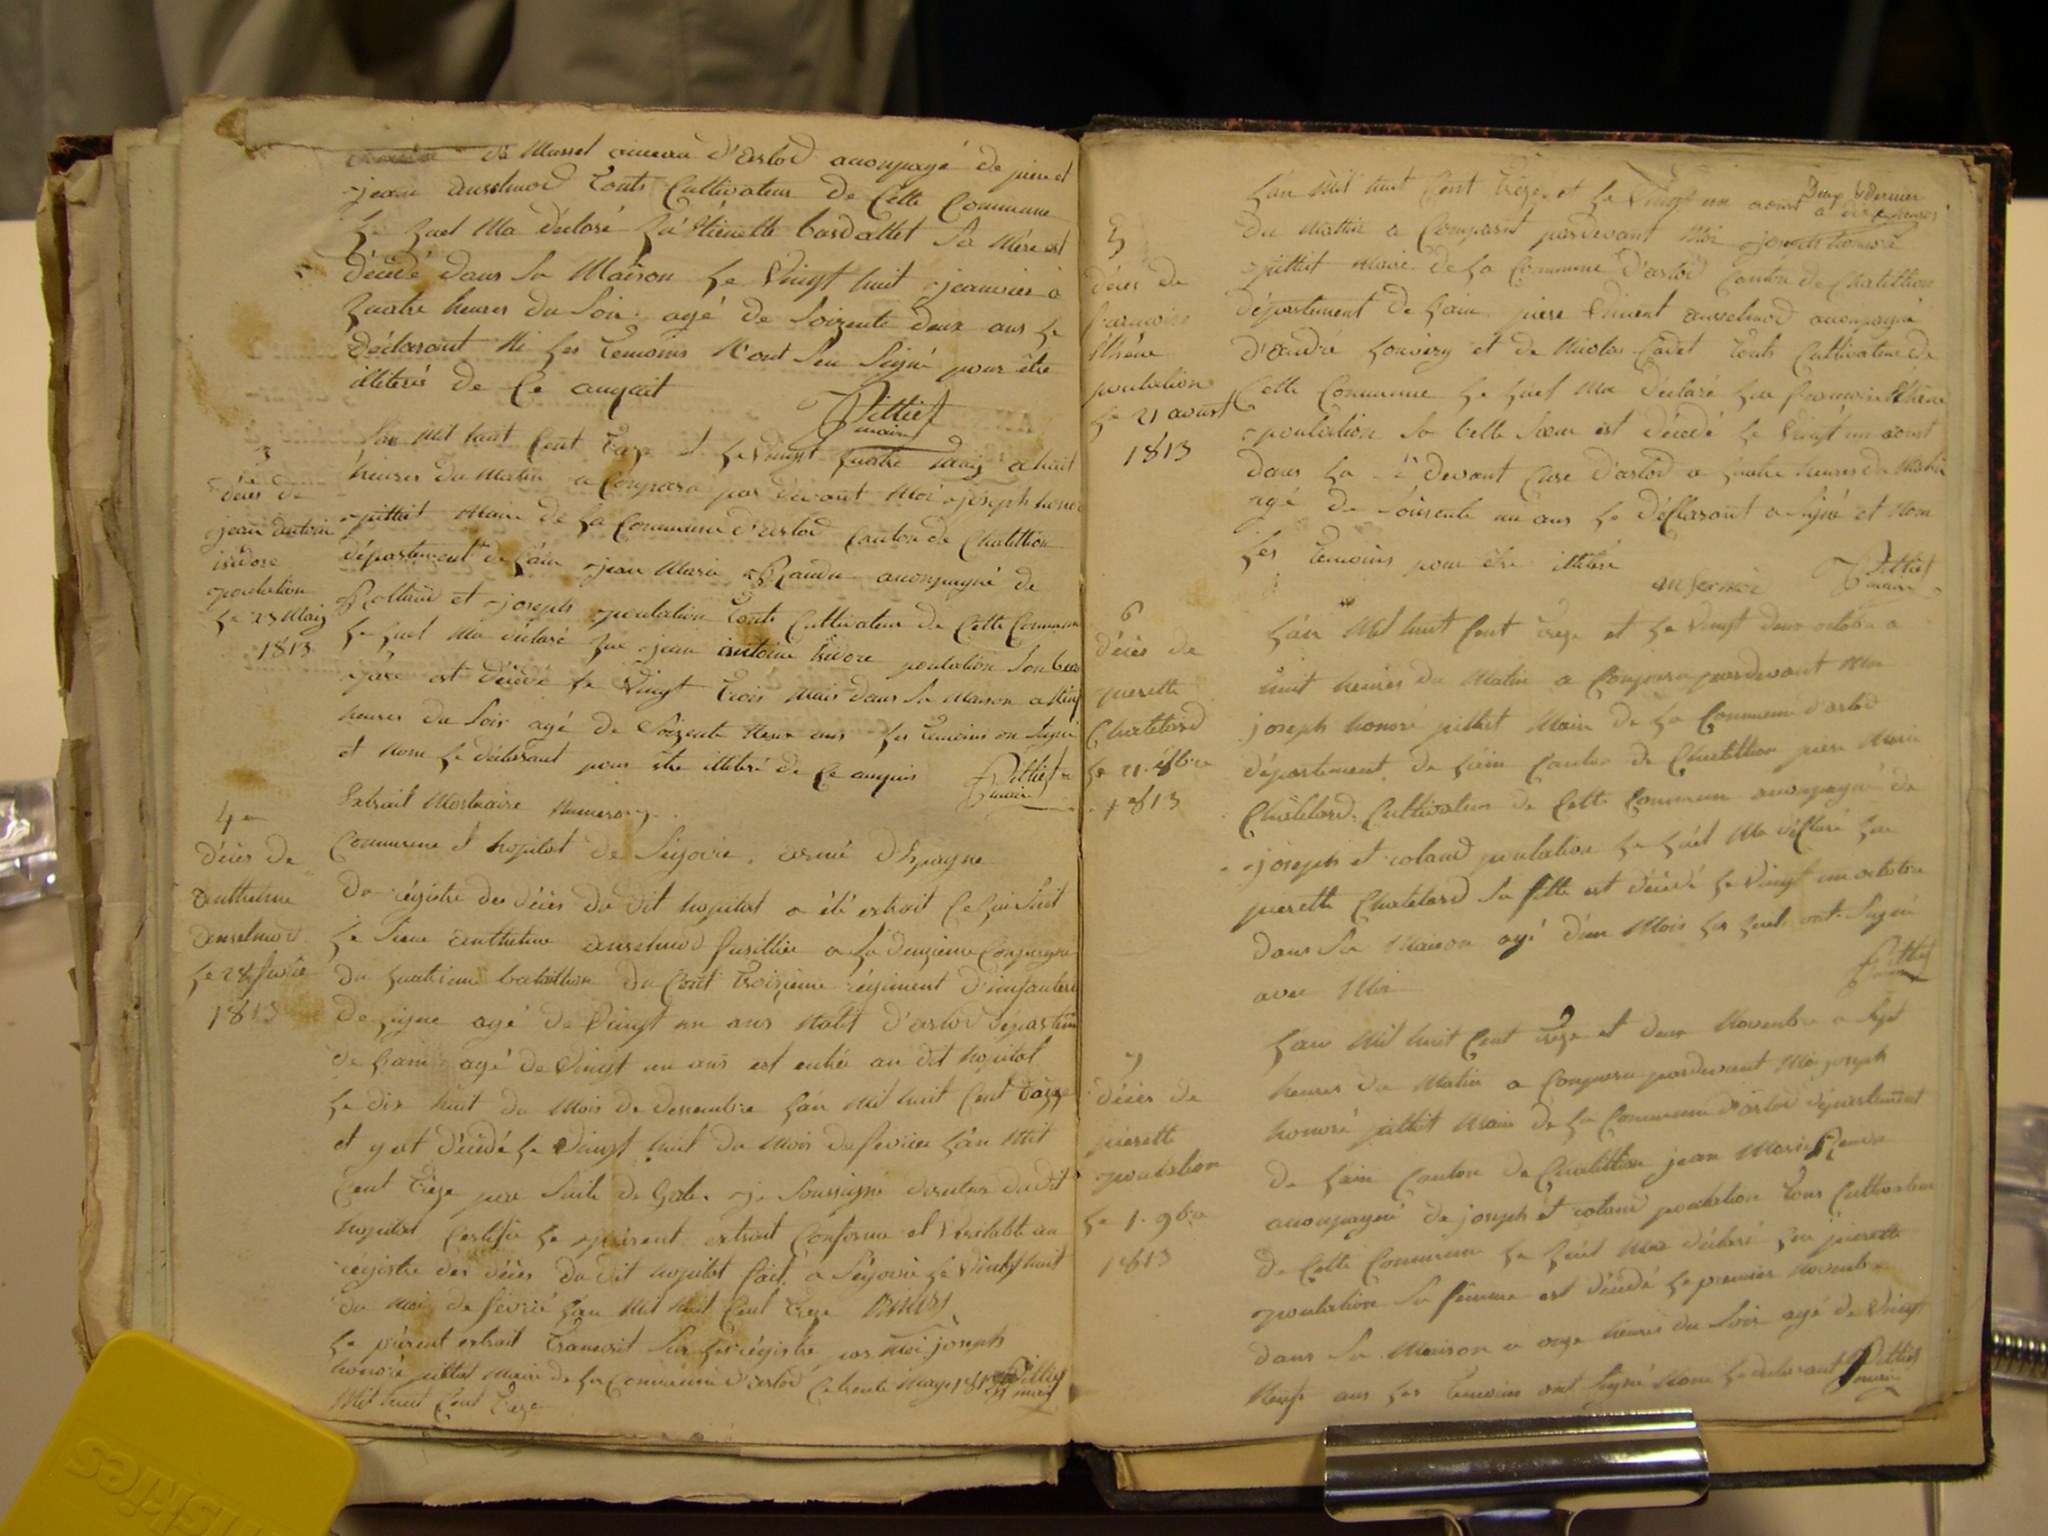 de Musset ameau d'arlod acconpagé de piere et
jean anselmod touts Cultivateur de Cette Commune
Le quel ma déclaré que étienette bardallet Sa Mère est
décédé dans Sa Maison Le Vingt huit jeanvier à
quatre heures du Soir agé de Soizente deux ans Le
déclarant Ni Les temoins N'ont Seu Signé pour être
illiteré de Ce anquit
Pilliet
maire
3
déces de
jean antoine
isidore
poulation
Le 23 Maiy
1813
L'an Mil huit Cent treze et Le Vingt quatre maiy a huit
heures du Matin a Conparu par devant Moi joseph honoré
pilliet Maire de La Commune d'arlod Canton de Chatillion
département de L'ain jean Marie acconpagné de
et joseph poulation touts Cultivateur de Cette Commune
Le quel Ma déclaré que jean antoine isidore poulation Son beau
père est décédé Le Vingt trois Mais dans Sa Maison a
heures du Soir agé de Soizente ans Les temoins on Signé
et Nom Le déclarant pour être illiteré de Ce anquis
Pilliet
maire
4
déces de
anthelme
anselmod
Le 28
1813
Extrait Mortuaire Numero
Commune d hopital de Ségovie, armé d'Espagne
du régistre des déces du dit hopital a été extrait Ce qui Suit
Le Sieur anthelme anselmod fusillier a La deuzieme Conpagnie
du batallion du Cent troizieme régiment d'infanterie
de Ligne agé de Vingt un ans Natif d'arlod département
de L'ain agé de Vingt un ans est entrée au dit hopital
Le dix huit du Mois de dessembre L'an Mil huit Cent douze
et y est décédé Le Vingt huit du Mois de fevrier L'an Mil
Cent treze par Suite de je Soussigné directeur du dit
hopital Certifie Le présent extrait Conforme et Veritable au
régistre des déces du dit hopital fait à Ségovie Le Vingt huit
du Mois de fevrié L'an Mil huit Cent treze
Le présent extrait transcrit Sur Les régistre par Moi joseph
honoré pilliet Maire de La Commune d'arlod Ce trente May 1813
Mil huit Cent treze
Pilliet
maire
5
déces de
francoise
poulation
Le 21 avoust
1813
Deux & dernier
L'an Mil huit Cent treze et Le Vingt un aoust a dix heures
du Matin a Comparut pardevant Moi joseph honoré
pilliet Maire de La Commune d'arlod Canton de Chatillion
département de L'ain piere Vincent anselmod acconpagné
d'andré et de Nicolas Cadet touts Cultivateur de
Cette Commune Le quel Ma déclaré que francoise
poulation Sa belle Sœur est décédé Le Vingt un aoust
dans La Ci devant Cure d'arlod a quatre heures du Matin
agé de Soisente un ans Le déclarant a Signé et Nom
Les temoins pour être illiteré
anselmod
Pilliet
maire
6
déces de
pierette
Chatelard
Le 21 8bre
1813
L'an Mil huit Cent treze et Le Vingt deux octobre a
huit heures du Matin a Conparu pardevant Moi
joseph honoré pilliet Maire de La Commune d'arlod
département de L'ain Canton de Chatillion piere Marie
Chatelard, Cultivateur de Cette Commune acconpagné de
joseph et roland poulation Le quel Ma déclaré que
pierette Chatelard Sa fille est décédé Le Vingt un octobre
dans Sa Maison agé d'un Mois Les quel ont Signé
avec Moi
Pilliet
maire
7
déces de
pierette
poulation
Le 1. 9bre
1813
L'an Mil huit Cent treze et deux Novembre a Sept
heures du Matin a Conparu pardevant Moi joseph
honoré pilliet Maire de La Commune d'arlod département
de L'ain Canton de Chatillion jean Marie
acconpagné de joseph et roland poulation tous Cultivateur
de Cette Commune Le quel Ma déclaré que pierette
poulation Sa femme est décédé Le premier Novembre
dans Sa Maison a onze heures du Soir agé de Vingt
Neuf ans Les temoins ont Signé Nom Le declarant
Pilliet
maire